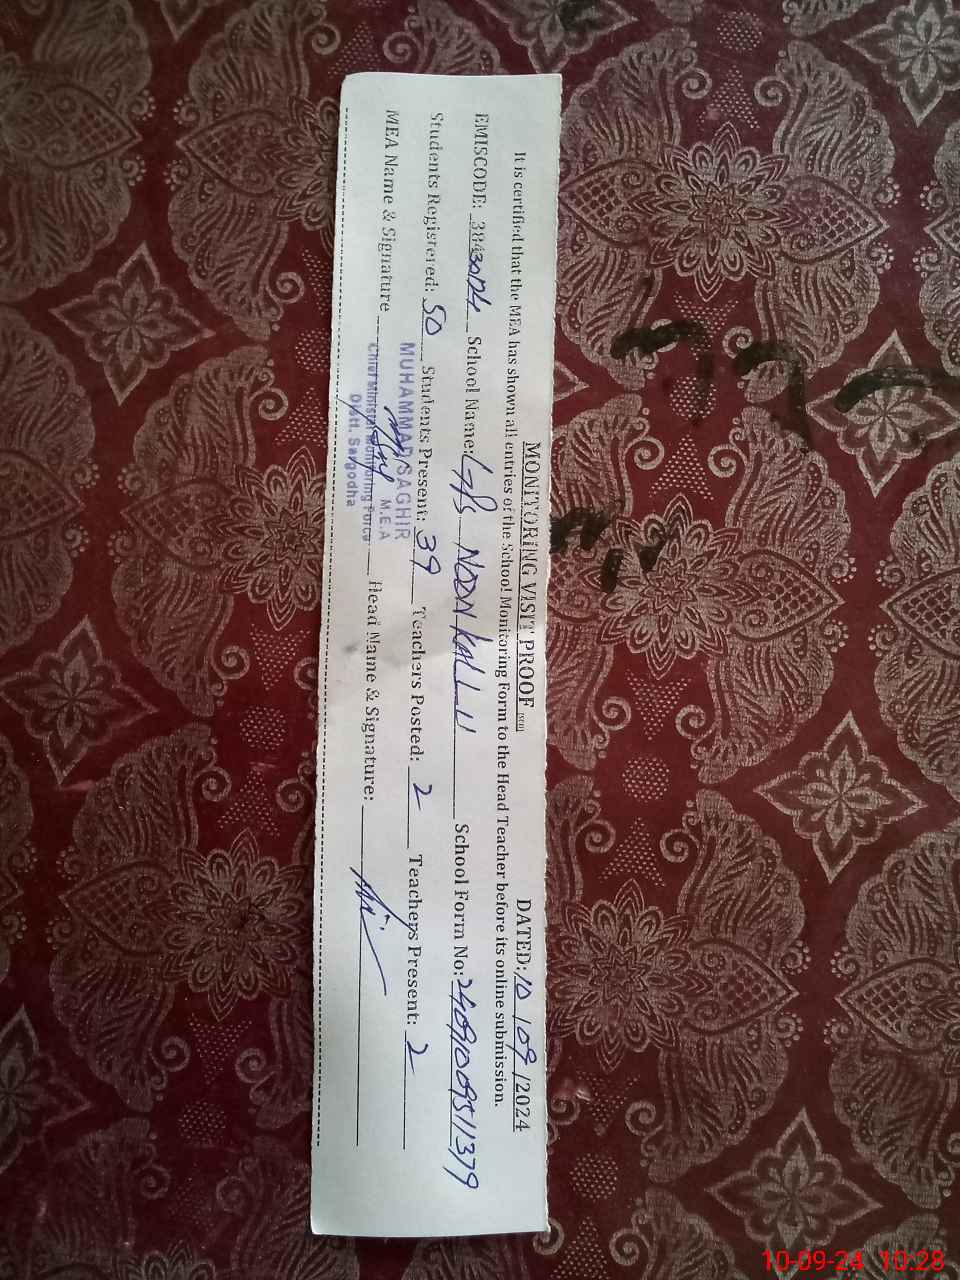 MONITORING VISIT PROOF DATED: 10/09/2024
It is certified that the MEA has shown all entries of the School Monitoring Form to the Head Teacher before its online submission.
EMISCODE: School Name: GPS NOON KALLU School Form No: 24091009511379
Students Registered: 50 Students Present: 39 Teachers Posted: 2 Teachers Present: 2
MEA Name & Signature Head Name & Signature:
MUHAMMAD SAGHIR
M.E.A
Chief Minister Monitoring Force
Distt. Sargodha
10-09-24 10:28